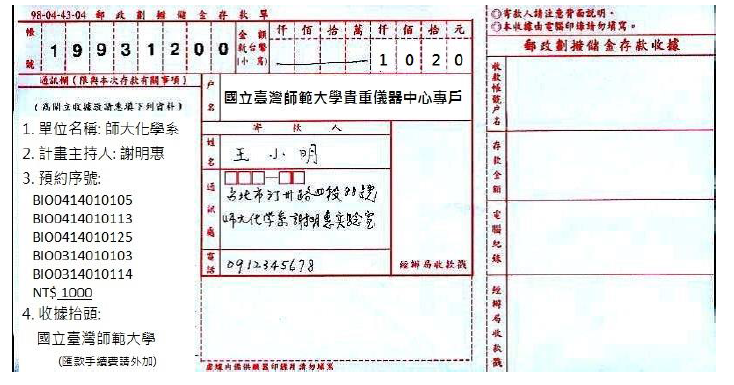 98-04-43-04 郵政劃撥儲金存款單
帳號
19931200
金額
新台幣
(小寫)
仟佰拾萬仟佰拾元
1020
通訊欄（限與本次存款有關事項）
1. 單位名稱: 師大化學系
2. 計畫主持人: 謝明惠
3. 預約序號:
BIO0414010105
BIO0414010113
BIO0414010125
BIO0314010103
BIO0314010114
NT$ 1000
4. 收據抬頭:
國立臺灣師範大學
(匯款手續費請外加)
戶名
國立臺灣師範大學貴重儀器中心專戶
寄款人
姓名
王小明
通訊處
台北市汀州路四段88號
師大化学系謝明惠實驗室
電話
0912345678
經辦局收款戳
虛線內備供機器印錄用請勿填寫
◎寄款人請注意背面說明。
◎本收據由電腦印錄請勿填寫。
郵政劃撥儲金存款收據
收款帳號戶名
存款金額
電腦紀錄
經辦局收款戳